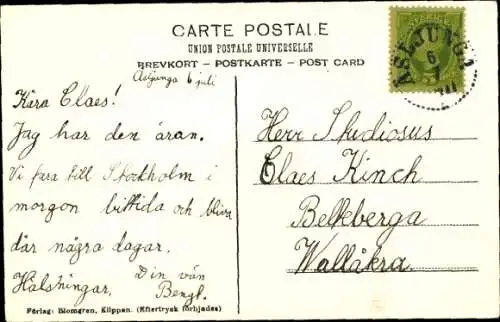 CARTE POSTALE
UNION POSTALE UNIVERSELLE
BREVKORT – POSTKARTE – POST CARD
Åsljunga 6 juli
Kära Claes!
Jag har den äran.
Vi fara till Stockholm i
morgon bittida och bliva
där några dagar.
Hälsningar, Din vän
Bengt.
Förlag: Blomgren, Klippan. (Eftertryck förbjudes)
ÅSLJUNGA
6
Herr Studiosus
Claes Kinch
Belteberga
Wallåkra.